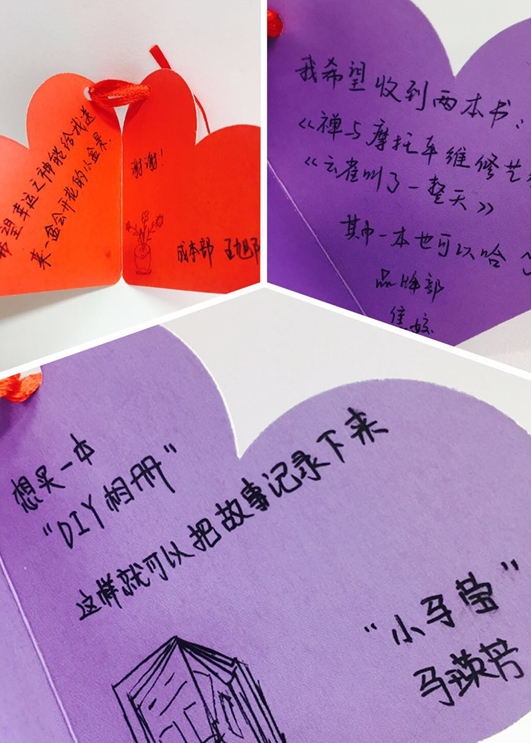 希望幸运之神能给我送
来一盆会开花的小盆景
谢谢!
成本部 王旭
我希望收到两本书:
《禅与摩托车维修艺
《云雀叫了一整天》
其中一本也可以哈~
品牌部
焦姣
想买一本
“DIY相册”
这样就可以把故事记录下来
“小马莹”
马瑛芳